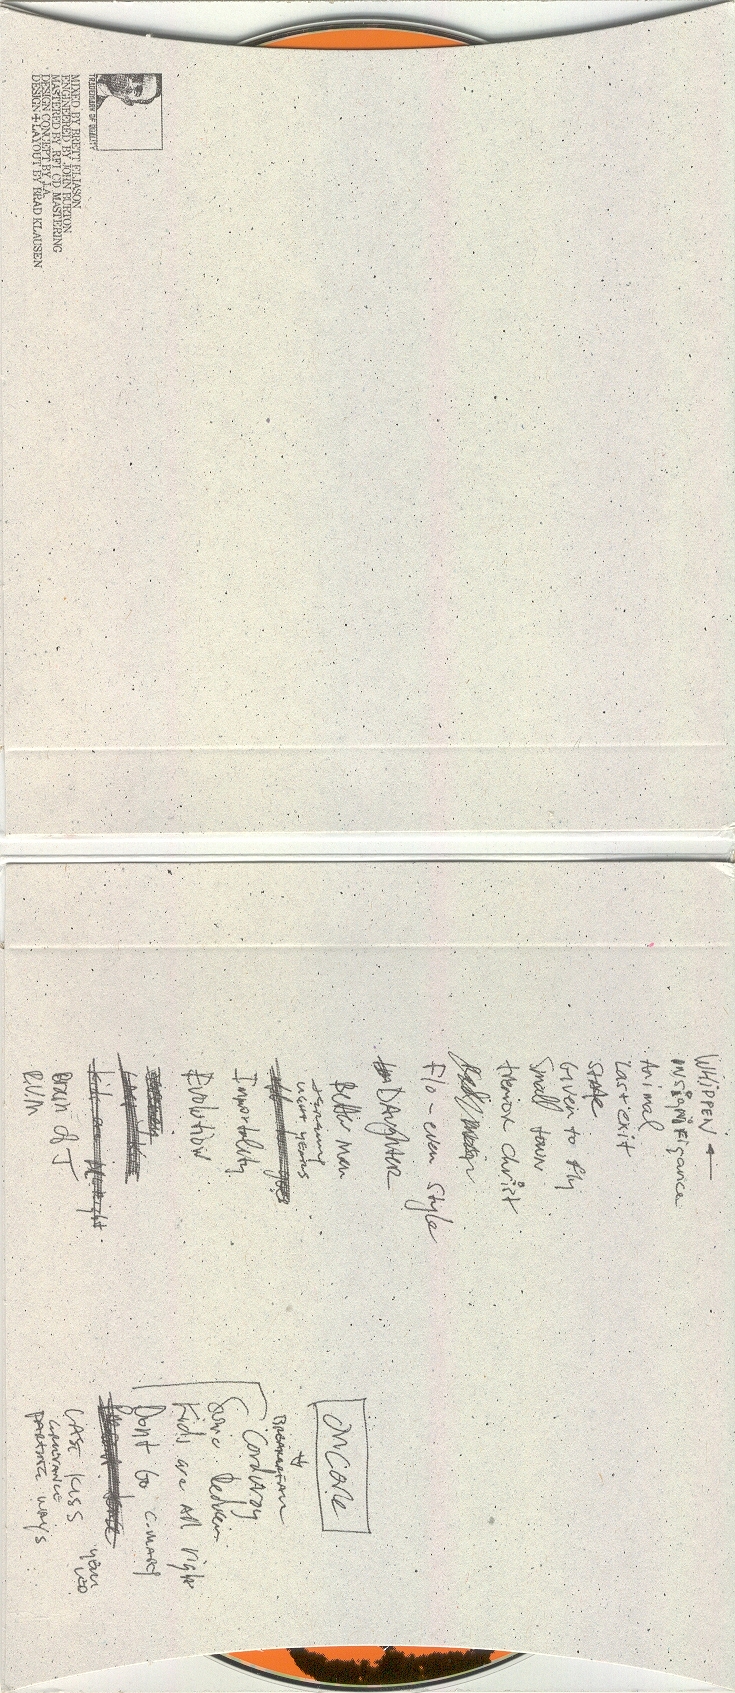 TRADEMARK OF QUALITY
MIXED BY BRETT ELIASON
ENGINEERED BY JOHN BURTON
MASTERED BY RFI CD MASTERING
DESIGN CONCEPT BY J.A.
DESIGN + LAYOUT BY BRAD KLAUSEN
WHIPPEN
INSIGNIFIGANCE
Animal
Last exit
STATE
Given to fly
Small town
Heriox Christ
Flo - even style
DAughteR
Better man
LIGHT YEARS
Imortality
Evolution
Brain of J
RVM
ONCORE
BREAKERFALL
Corduroy
Sonic Reducer
Kids are All right
Dont Go C.MARY
LAST KISS
PARTING WAYS